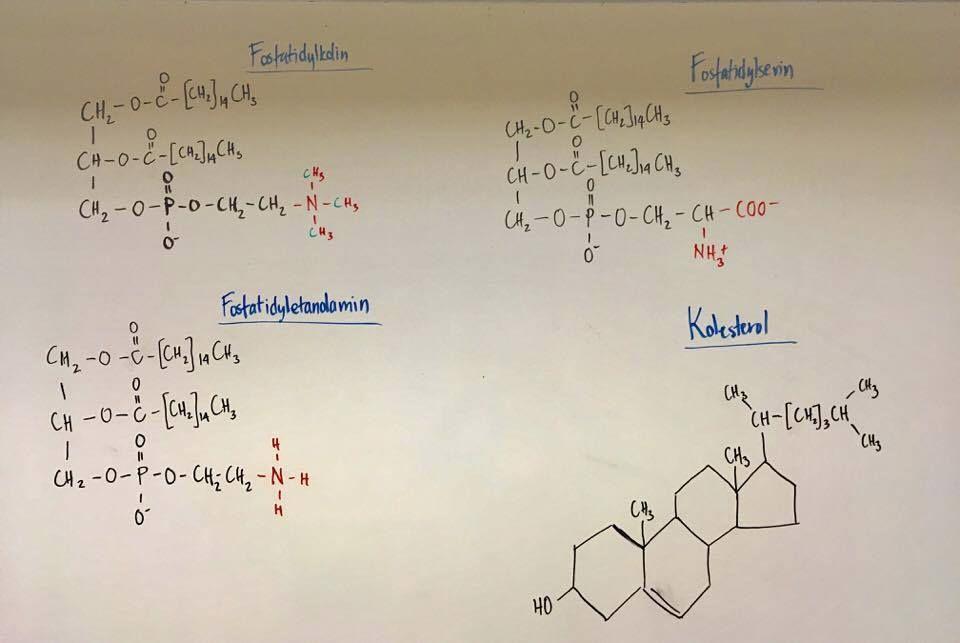 Fosfatidylkolin
O
CH₂-O-C-[CH₂]₁₄CH₃
O
CH-O-C-[CH₂]₁₄CH₃
O CH₃
CH₂-O-P-O-CH₂-CH₂-N-CH₃
O⁻ CH₃
Fosfatidylserin
O
CH₂-O-C-[CH₂]₁₄CH₃
O
CH-O-C-[CH₂]₁₄CH₃
O
CH₂-O-P-O-CH₂-CH-COO⁻
O⁻ NH₃⁺
Fosfatidyletanolamin
O
CH₂-O-C-[CH₂]₁₄CH₃
O
CH-O-C-[CH₂]₁₄CH₃
O H
CH₂-O-P-O-CH₂-CH₂-N-H
O⁻ H
Kolesterol
CH₃ CH₃
CH-[CH₂]₃CH
CH₃ CH₃
CH₃
HO